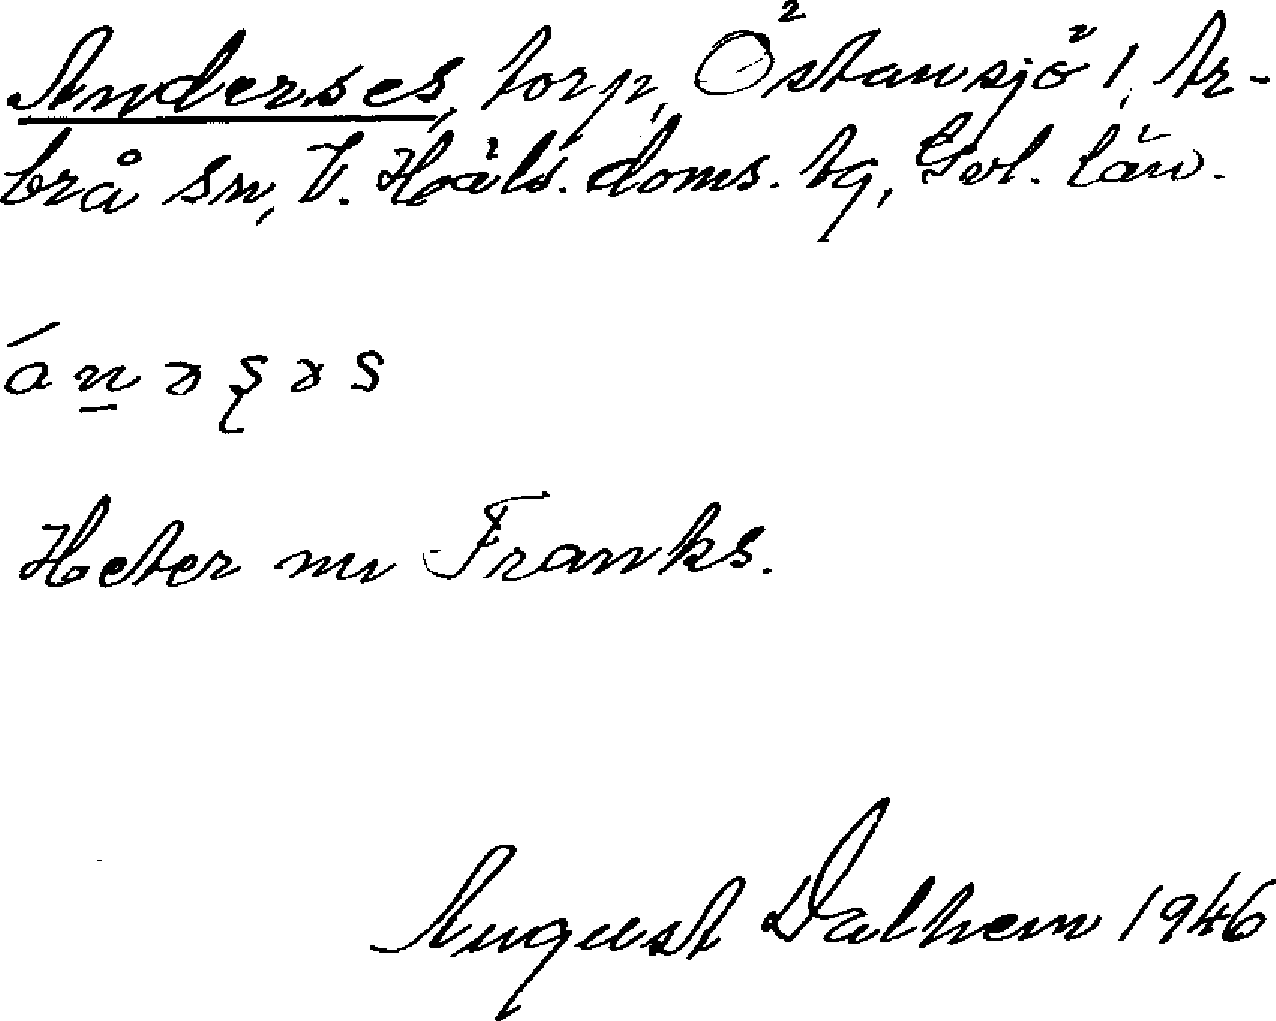 Anderses, torp, Östansjö 1, Ar-
brå sn, V. Häls. doms. tg, Gvl. län.
án̲əʂəs
Heter nu Franks.
August Dalhem 1946